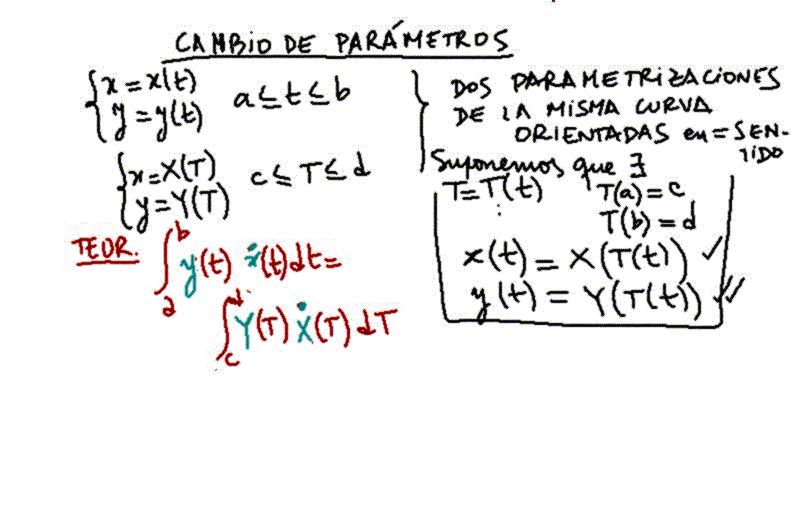 CAMBIO DE PARÁMETROS
{x=x(t)
{y=y(t) a≤t≤b
{x=X(T)
{y=Y(T) c≤T≤d
} DOS PARAMETRIZACIONES
DE LA MISMA CURVA
ORIENTADAS en = SEN-
TIDO
Suponemos que ∃
T=T(t) T(a)=c
: T(b)=d
x(t) = X(T(t)) ✓
y(t) = Y(T(t)) ✓✓
TEOR. ∫_a^b y(t) ẋ(t)dt=
∫_c^d Y(T) Ẋ(T) dT